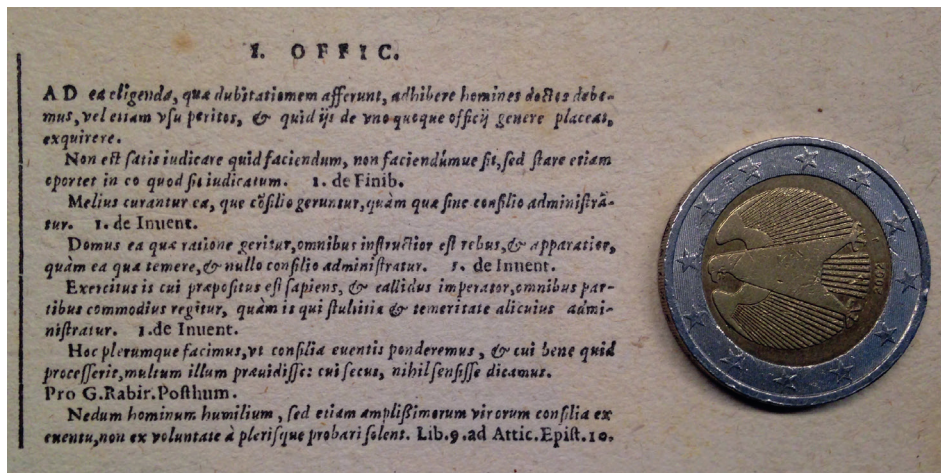 I. OFFIC.
AD ea eligenda, quæ dubitationem afferunt, adhibere homines doctos debe-
mus, vel etiam vsu peritos, & quid ijs de vnoquoque officij genere placeat,
exquirere.
Non est satis iudicare quid faciendum, non faciendúmue sit, sed stare etiam
oportet in eo quod sit iudicatum. 1. de Finib.
Melius curantur ea, que cõsilio geruntur, quàm quæ sine consilio administrã-
tur. 1. de Inuent.
Domus ea quæ ratione geritur, omnibus instructior est rebus, & apparatior,
quàm ea quæ temere, & nullo consilio administratur. 1. de Inuent.
Exercitus is cui præpositus est sapiens, & callidus imperator, omnibus par-
tibus commodius regitur, quàm is qui stultitia & temeritate alicuius admi-
nistratur. 1. de Inuent.
Hoc plerumque facimus, vt consilia euentis ponderemus, & cui bene quid
processerit, multum illum præuidisse: cui secus, nihil sensisse dicamus.
Pro G. Rabir. Posthum.
Nedum hominum humilium, sed etiam amplißimorum virorum consilia ex
euentu, non ex voluntate à plerisque probari solent. Lib. 9. ad Attic. Epist. 10.
2002